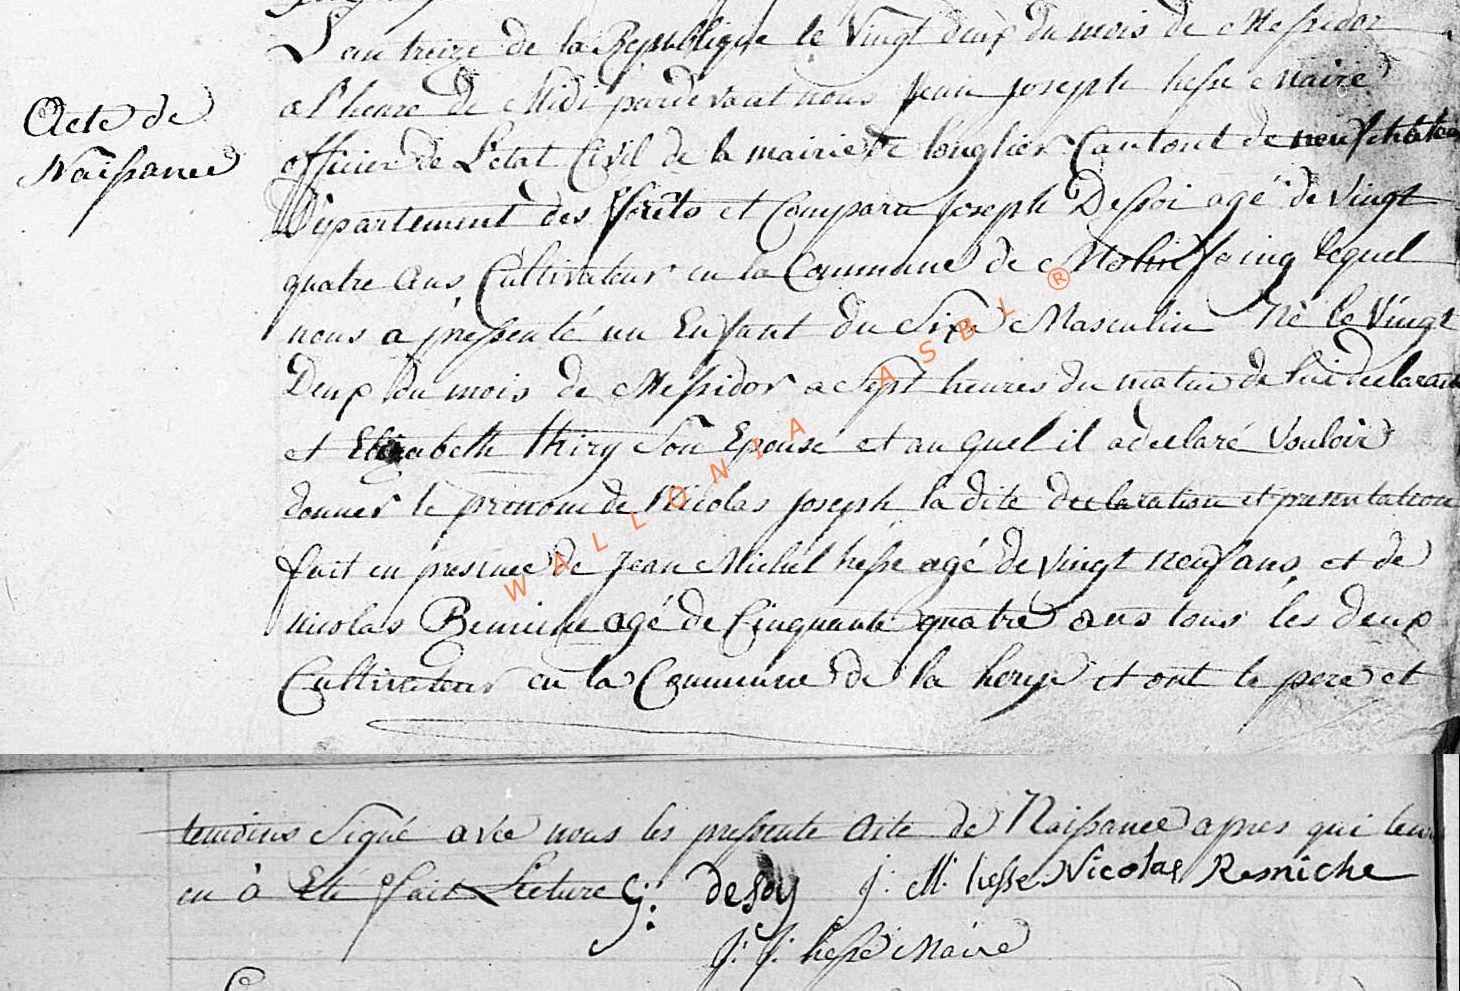 Acte de
Naissance
L'an treize de la Republique le Vingt deux du mois de Messidor
a l'heure de Midi pardevant nous Jean Joseph hesse Maire
officier de L'etat Civil de la mairie de longlier Cantont de neufchateau
Département des forêts et Comparu Joseph Dessoi agé de Vingt
quatre ans Cultivateur en la Commune de Molinfaing lequel
nous a pressenté un Enfant du Sixe Masculin Né le Vingt
Deux du mois de Messidor a Sept heures du matin de lui declarant
et Elizabeth thiry Son Epouse et au quel il a declaré Vouloir
donner le prenom de Nicolas Joseph la dite declaration et presentation
fait en presence de Jean Michel hesse agé de Vingt neuf ans et de
nicolas Remiche agé de Cinquante quatre ans tous les deux
Cultivateur en la Commune de la herye et ont le pere et
temoins Signé avec nous les pressente acte de Naissance apres qui leur
en à Eté fait Lecture G: desoy J: M: hesse Nicolas Remiche
J: J: hesse Maire
WALLONIA ASBL ®